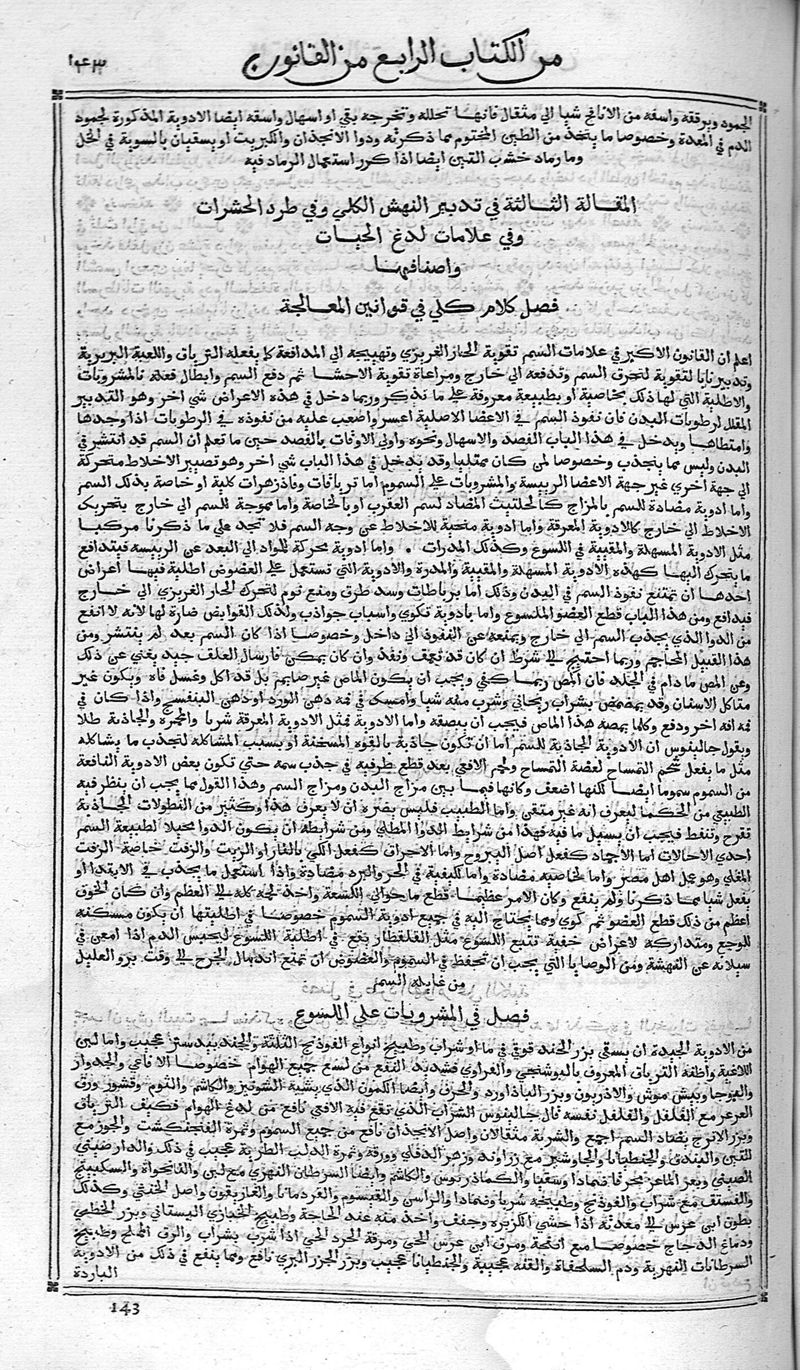 ١٤٣
من الكتاب الرابع من القانون
الجمود وبرققه واسفه من الانافح شيا الي مثقال فانها تحلله وتخرجه بقي او اسهال واسقه ايضا الادوية المذكورة لجمود
الدم في المعدة وخصوصا ما يتخذ من الطين المختوم مما ذكرنه ودوا الانجذان والكبريت او يسقيان بالسوية في الخل
وما رماد خشب التين ايضا اذا كرر استعمال الرماد فيه
المقالة الثالثة في تدبير النهش الكلي وفي طرد الحشرات
وفي علامات لدغ الحيات
واصنافها
فصل كلام كلي في قوانين المعالجة
اعلم ان القانون الاكبر في علامات السم تقوية الحار الغريزي وتهييجه الي المدافعة كما يفعله الترياق واللعبة البربرية
وتدبير لتقوية لتحرق السم وتدفعه الي خارج ومراعاة تقوية الاحشا ثم دفع السم وابطال فعله بالمشروبات
والاطلية التي لها ذلك بخاصية او بطبيعة معروفة علي ما نذكر وربما دخل في هذه الاعراض شي اخر وهو التدبير
المقلل لرطوبات البدن فان نفوذ السم في الاعضا الاصلية اعسر واصعب عليه من نفوذه في الرطوبات اذا وجدها
وامتطاها ويدخل في هذا الباب الفصد والاسهال ونحوه واولي الاوقات بالفصد حين ما تعلم ان السم قد انتشر في
البدن وليس مما ينجذب وخصوصا لمن كان ممتليا وقد يدخل في هذا الباب شي اخر وهو تصيير الاخلاط متحركة
الي جهة اخري غير جهة الاعضا الرييسة والمشروبات علي السموم اما ترياقات وفاذزهرات كلية او خاصة بذلك السم
واما ادوية مضادة للسم بالمزاج كالحلتيث المضاد لسم العقرب او بالخاصة واما موجة للسم الي خارج بتحريك
الاخلاط الي خارج كالادوية المعرقة واما ادوية منحية للاخلاط عن وجه السم فلا تجد علي ما ذكرنا مركبا
مثل الادوية المسهلة والمقيية في اللسوع وكذلك المدرات . واما ادوية محركة للمواد الي البعد عن الرييسة فيتدافع
ما يتحرك اليها كهذه الادوية المسهلة والمقيية والمدرة والادوية التي تستعمل علي العضوض اطلية فيها أعراض
احدها ان يمتنع نفوذ السم في البدن وذلك اما برباطات وسد طرق ومنع نوم لتحرك الحار الغريزي الي خارج
فيدافع ومن هذا الباب قطع العضو الملسوع واما بادوية تكوي واسباب جواذب ولذلك القوابض ضارة لها لانه لا انفع
من الدوا الذي يجذب السم الي خارج ويمنعه عن النفوذ الي داخل وخصوصا اذا كان السم بعد لم ينتشر ومن
هذا القبيل المحاجم وربما احتيج الي شرط ان كان قد تعمق ونفذ وان كان يمكن فارسال العلق جيد يغني عن ذلك
وعن المص ما دام في الجلد فان المص ربما كفي ويجب ان يكون الماص غير صايم بل قد اكل وغسل فاه ويكون غير
متاكل الاسنان وقد يمضمض بشراب ريحاني وشرب منه شيا وامسك في فمه دهن الورد او دهن البنفسج واذا كان في
فمه افه اخر ودفع وكلما يمصه هذا الماص فيجب ان يبصقه واما الادوية فمثل الادوية المعرقة شربا والمحمرة والجاذبة طلا
ويقول جالينوس ان الادوية الجاذبة للسم اما ان تكون جاذبة بالقوه المسخنة او بسبب المشاكله لتجذب ما يشاكله
مثل ما يفعل شحم التمساح لعضة التمساح ولحم الافعي بعد قطع طرفيه في جذب سمه حتي تكون بعض الادوية النافعة
من السموم سموما ايضا لكنها اضعف وكانها فيما بين مزاج البدن ومزاج السم وهذا القول مما يجب ان ينظر فيه
الطبيعي من الحكما ليعرف انه غير متقن واما الطبيب فليس يضره ان لا يعرف هذا وكثير من النطولات الجاذبة
تقرح وتنفط فيجب ان يسيل ما فيه فهذا من شرايط الدوا المطلي ومن شرايطه ان يكون الدوا محيلا لطبيعة السم
احدي الاحالات اما الاجماد كفعل اصل اليبروح واما الاحراق كفعل الكي بالنار او الزيت والزفت خاصة الزفت
المغلي وهو عمل اهل مصر واما لخاصيه مضادة واما لكيفية في الحر والبرد مضادة واذا استعمل ما يجذب في الابتدا او
يفعل شيا مما ذكرنا ولم ينفع وكان الامر عظيما قطع ما حوالي اللسعة واخذ لحمه كله الي العظم وان كان الخوف
اعظم من ذلك قطع العضو ثم كوي ومما يحتاج اليه في جميع ادوية السموم خصوصا في اطليتها ان يكون مسكنه
للوجع ومتداركه لاعراض خفية تتبع اللسوع مثل القلقطار يقع في اطلية اللسوع ليحبس الدم اذا امعن في
سيلانه عن النهشة ومن الوصايا التي يجب ان تحفظ في السموم والعضوض ان تمنع اندمال الجرح الي وقت بروالعليل
من غايلة السم
فصل في المشروبات علي اللسوع
من الادوية الجيدة ان يسقي بزر الحندقوقي في ما او شراب وطبيخ انواع الفوذنج الثلثة والجندبيدستر عجيب واما لبن
اللاغية واظنه الترياق المعروف بالبوشنجي والغراوي فشديد النفع من لسع جميع الهوام خصوصا الافاعي والجدوار
والبوحا وبيش موش والاذربون وبزر الباذاورد والحرف وايضا الكمون الذي يشبه الشونيز والكاشم والثوم وقشور ورق
العرعر مع الفلفل والفلفل نفسه قال جالينوس الشراب الذي تقع فيه الافعي نافع من لدغ الهوام فكيف الترياق
وبزر الاترج يضاد السم اجمع والشربة مثقالان واصل الانجذان نافع من جميع السموم وثمرة الفنجنكشت والجوز مع
التين والبندق والجنطيانا والجاوشير مع زراوند وزهر الدفلي وورقه وثمرة الدلب الطرية عجيب في ذلك والدارصيني
الصيني وبعر الماعز محرقا ضمادا وسقيا والكماذريوس والكاشم وايضا السرطان النهري مع لبن والقانحواة والسكبينج
والفستق مع شراب والفوذنج وطبيخه شربا وضمادا والراسن والقيسوم والقردمانا والغاريقون واصل الخنثي وكذلك
بطون ابن عرس الي معدته اذا حشي الكزبرة وجفف واخذ منه عند الحاجة وطبيخ الخبازي البستاني وبزر الخطمي
ودماغ الدجاج خصوصا مع انفحة ومرق ابن عرس الحي ومرقة الجرذ الحي اذا شرب بشراب والزق الملح وطبيخ
السرطانات النهرية ودم السلحفاة والقنه عجيبة والجنطيانا عجيب وبزر الجزر البري نافع ومما ينفع في ذلك من الادوية
الباردة
143